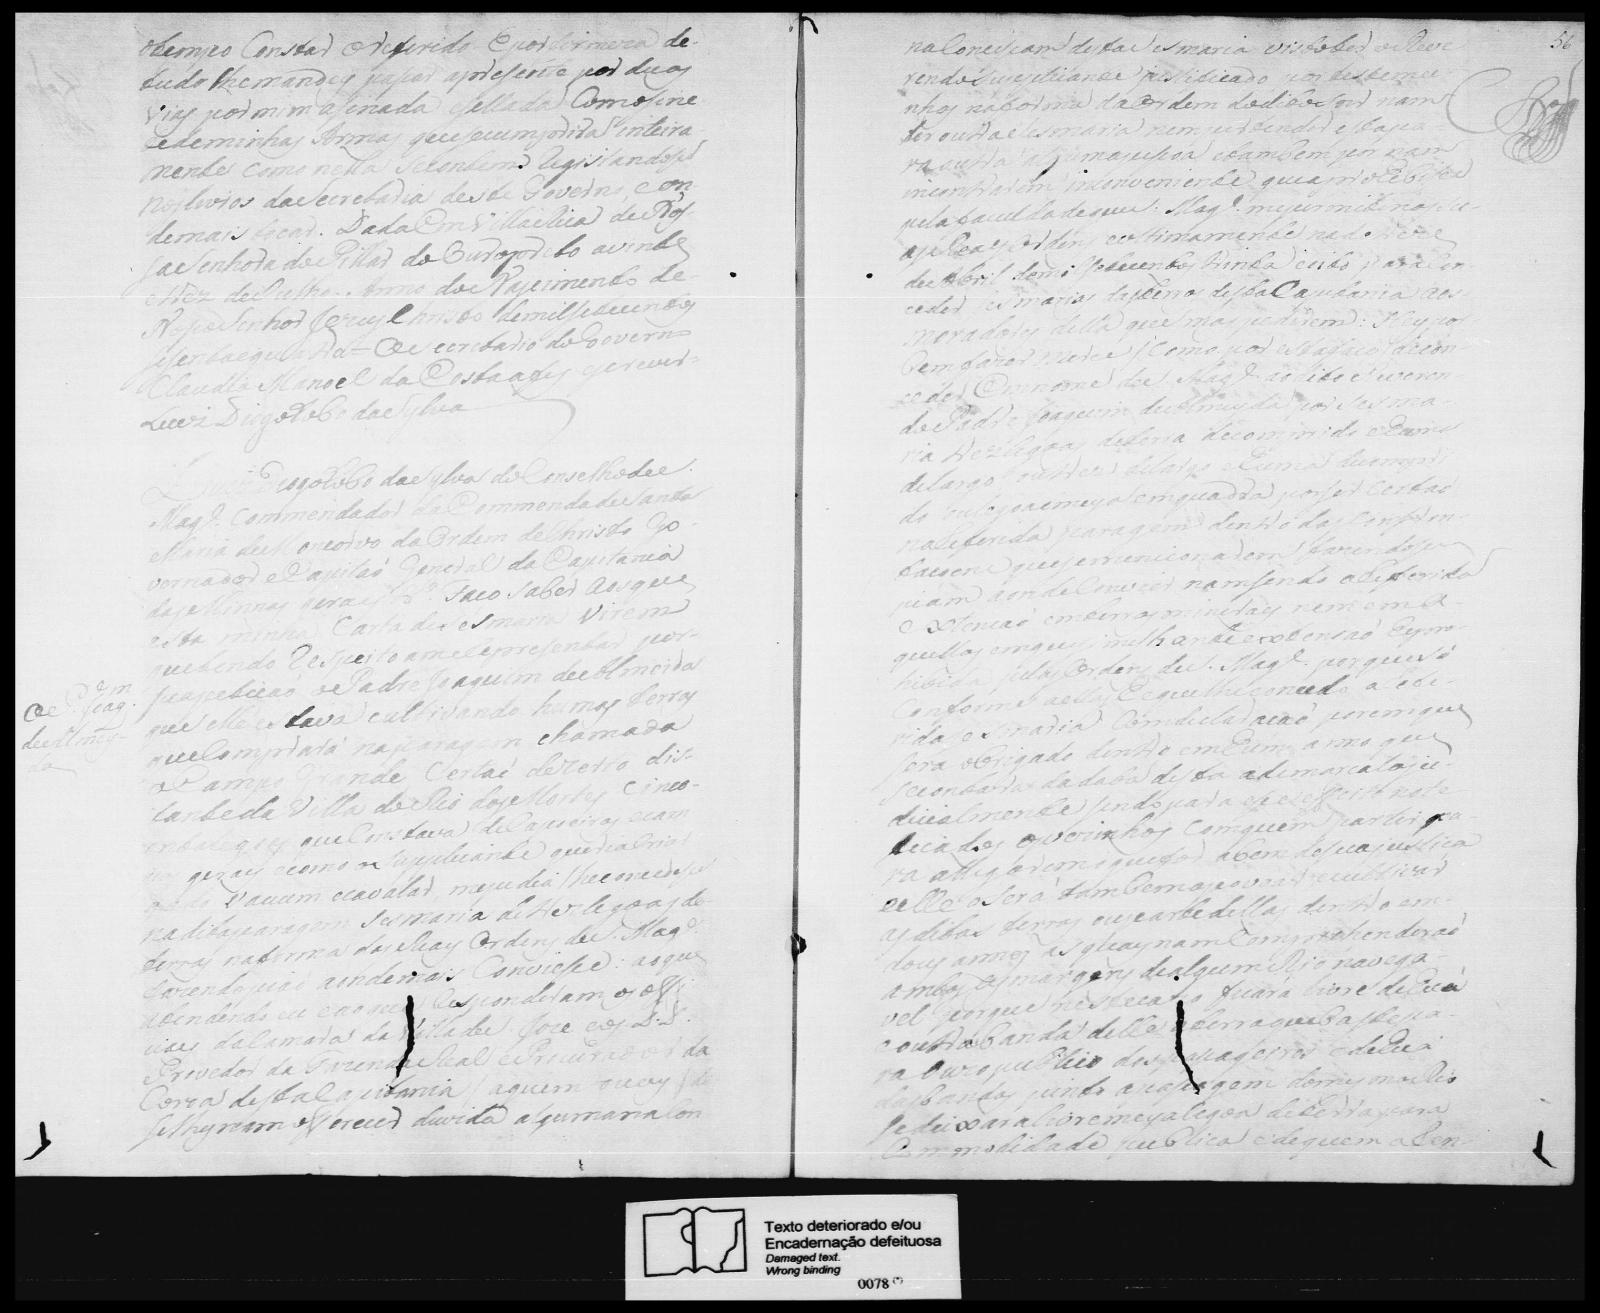 otempo Constar oreferido. Epor firmeza de-
tudo lhe mandey passar apresente por duas
Vias por mim asinada esellada Comosine
te deminhas Armas que secumprirá inteira-
mente como nella secontem Registandosse
nos livros da Secretaria deste Governo, e on
demais tocar. Dada Em Villa Rica de Nos-
sa Senhora do Pillar do Ouro preto a vinte
e trez de Julho. Anno do Nascimento de-
Nosso Senhor Jezus Christo de mil setecentos
sesenta e quatro = O Secretario do Governo
Claudio Manoel da Costa a fes escrever=
Luis Diogo Lobo da Sylva
Luis Diogo Lobo da Sylva do Conselho de
Magde. Commendador da Commenda de Santa
Maria de Moncorvo da Ordem de Christo Go-
vernador e Capitão General da Capitania
das Minnas geraes &a. Faco saber aos que
esta minha Carta de sesmaria Virem
que tendo Respeito a me Reprezentar por
sua petição o Padre Joaquim de Almeida
que elle estava cultivando humas terras
que Comprará na paragem chamada
o Campo Grande Certão dezerto dis-
tante da Villa do Rio das Mortes Cinco-
enta legoas que Constava de Capoeiras e cam
pos geraes e como o Supplicante queria criar
gado Vacum e cavalar, me pedia lhe concedese
na dita paragem sesmaria de trez legoas de
terras na forma das Reaes Ordens de S. Magde.
fazendo pião aonde mais Conviesse: ao que
atendendo eu e ao que Responderam os offi
ciaes da Camara da Villa de S. Joze e os D.D.
Provedor da Fazenda Real e Procurador da
Coroa desta Capitania (aquem ouvy) de
selhe nam offerecer duvida alguma na Con
O Pe. Joaqm.
de Almey-
da
56
na Concicam desta sesmaria visto ter o Reve
rendo Supplicante justificado por testemu
nhas na forma da Ordem do dito Snr nam
ter outra sesmaria nem pertender esta pa-
ra outra alguma pesoa e tambem por nam
incontrarem inconveniente que a prohibisse
pela faculdade que S. Magde. me permite nas su-
as Reaes Ordens e ultimamente na de treze
de Abril de mil setecentos trinta e oito para Con
ceder sesmarias das terras desta Capitania aos
moradores della que mas pedirem: Hey por
bem fazer merce (como por esta faco) de con-
ceder Em nome de S. Magde. ao dito Reveren-
do Padre Joaquim de Almeyda por sesma-
ria trez legoas de terra de comprido e Huma
de largo ou trez de largo e Huma de compri
do ou legoa e meya em quadra por ser Certão
na Referida paragem dentro das Confron-
tacoens que se mencionarem fazendo se
piam aonde Conviér nam sendo a Referida
Extencão em terras mineraes nem em a-
quellas em que semilhante extensão he pro-
hibida pelas Ordens de S. Magde. porque só
Conforme a ellas he que lhe concedo a refe-
rida sesmaria Com declaracaó porem que
sera obrigado dentro em Hum anno que
secontará da data desta a demarcalas ju-
dicialmente sendo para esse effeito note-
ficados os vezinhos Com quem partir pa-
ra allegarem o que for a bem de sua justica
e elle o será tambem a povoar e cultivar
as ditas terras ou parte dellas dentro em
dous annos as quaes nam Comprehenderaó
ambas as margens de algum Rio navega-
vel porque neste caso ficara livre de Hua
e outra banda delle a terra que baste pa-
ra o uzo publico dos passageiros e de Hua
das bandas junto a passagem do mesmo Rio
se deixara livre meya legoa de terra para
Commodidade publica e de quem a Ren-
Texto deteriorado e/ou
Encadernação defeituosa
Damaged text.
Wrong binding
0078